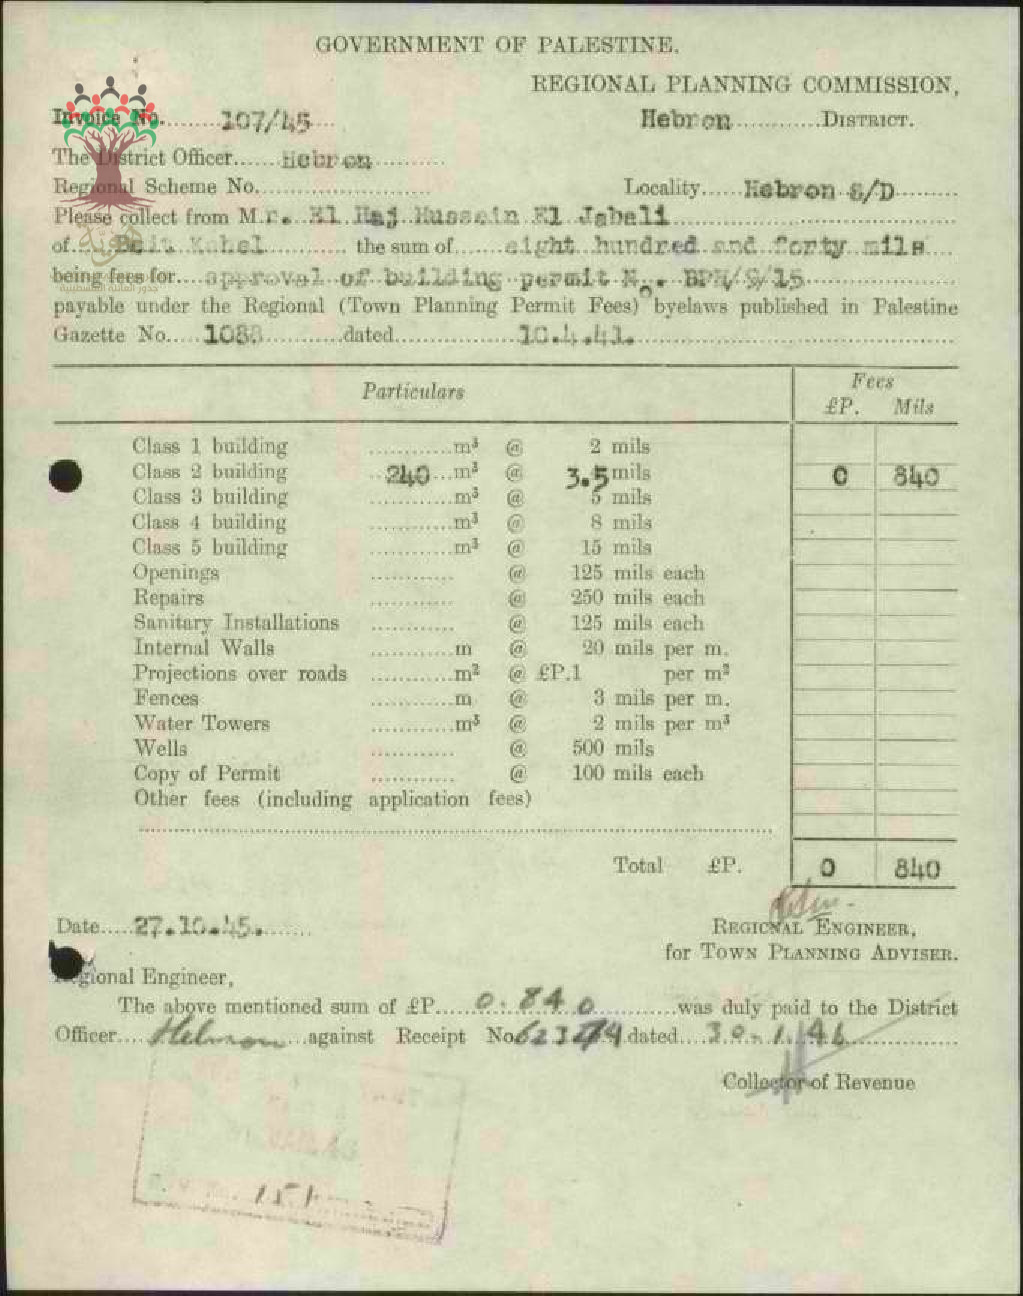 GOVERNMENT OF PALESTINE.
REGIONAL PLANNING COMMISSION,
Invoice No. 107/45 Hebron DISTRICT.
The District Officer Hebron
Regional Scheme No. Locality Hebron S/D
Please collect from Mr. El Haj Hussein El Jabali
of Beit Kahel the sum of eight hundred and forty mils
being fees for approval of building permit No. BPH/9/15
payable under the Regional (Town Planning Permit Fees) byelaws published in Palestine
Gazette No. 1088 dated 10.4.41.
Particulars Fees
£P. Mils
Class 1 building m³ @ 2 mils
Class 2 building 240 m³ @ 3.5 mils 0 840
Class 3 building m³ @ 5 mils
Class 4 building m³ @ 8 mils
Class 5 building m³ @ 15 mils
Openings @ 125 mils each
Repairs @ 250 mils each
Sanitary Installations @ 125 mils each
Internal Walls m @ 20 mils per m.
Projections over roads m² @ £P.1 per m²
Fences m @ 3 mils per m.
Water Towers m³ @ 2 mils per m³
Wells @ 500 mils
Copy of Permit @ 100 mils each
Other fees (including application fees)
Total £P. 0 840
Date 27.10.45.
REGIONAL ENGINEER,
for TOWN PLANNING ADVISER.
Regional Engineer,
The above mentioned sum of £P. 0.840 was duly paid to the District
Officer Hebron against Receipt No. dated 30.1.46
Collector of Revenue